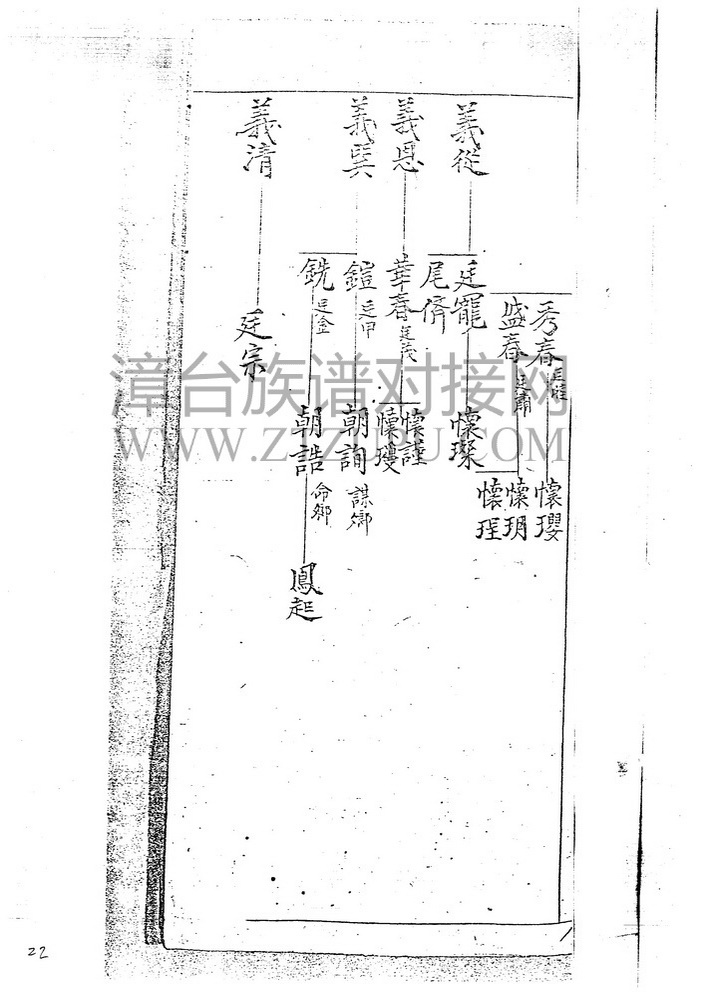 秀春
懷瓔
盛春
懷玥
懷珵
義從
廷寵
懷琛
尾儕
義恩
華春 廷茂
懷謹
懷瓊
義巽
鎧 廷甲
朝詢 謀卿
銑 廷金
朝誥 命卿
鳳起
義清
廷宗
漳台族谱对接网
WWW.ZTZUPU.COM
22